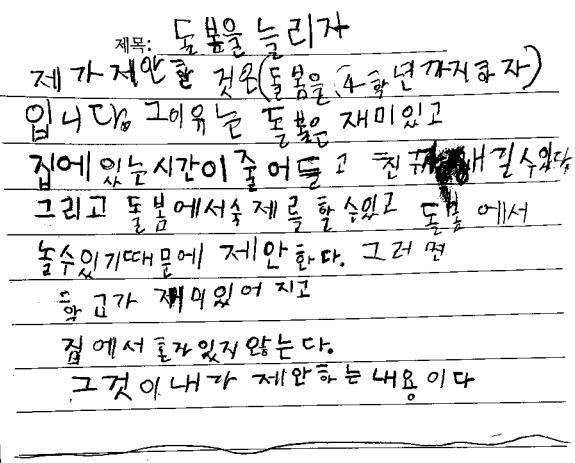 제목: 돌봄을 늘리자
제가 제안할 것은(돌봄을 4학년까지하자)
입니다. 그이유는 돌봄은 재미있고
집에 있는시간이 줄어들고 친구 생길수있다
그리고 돌봄에서숙제를 할수있고 돌봄에서
놀수있기때문에 제안한다. 그러면
학교가 재미있어 지고
집에서 혼자있지않는다.
그것이 내가 제안하는 내용이다